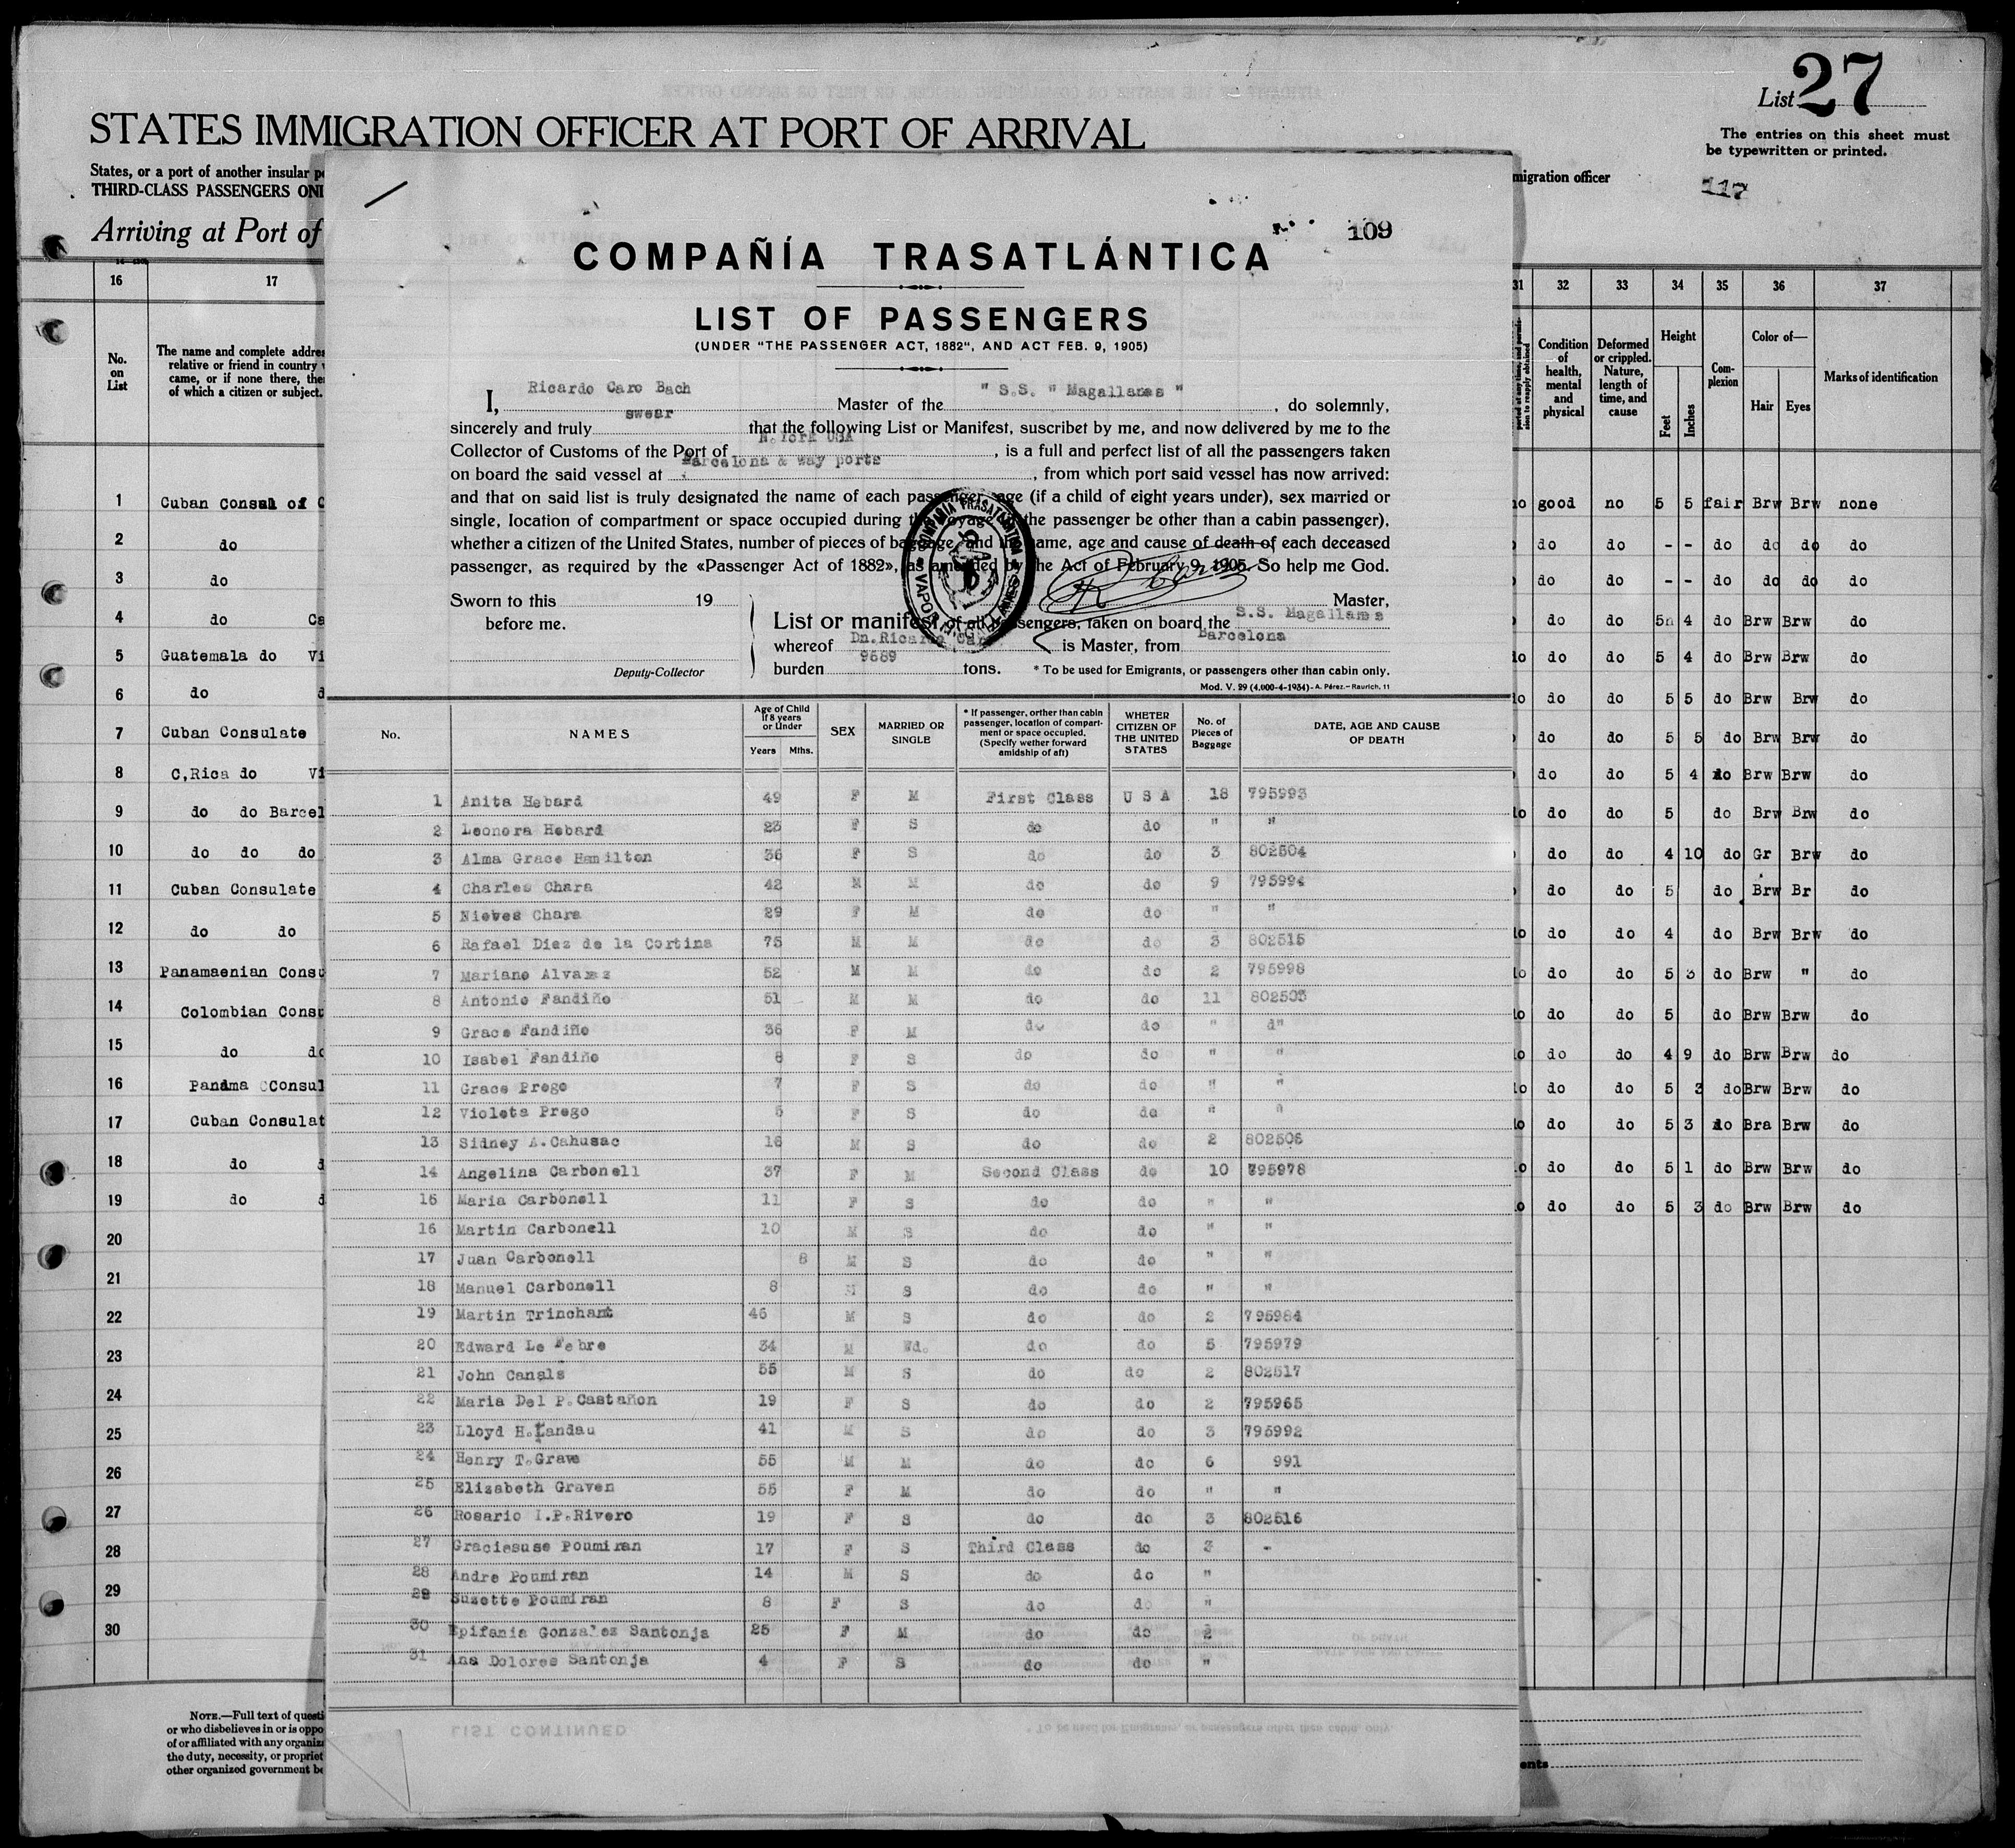 List 27
The entries on this sheet must
be typewritten or printed.
STATES IMMIGRATION OFFICER AT PORT OF ARRIVAL
States, or a port of another insular
THIRD-CLASS PASSENGERS
migration officer
117
Arriving at Port of
16 17
No. on List
The name and complete
relative or friend in country
came, or if none there,
of which a citizen or subject.
1 Cuban Consul of
2 do
3 do
4 do
5 Guatemala do
6 do
7 Cuban Consulate
8 C,Rica do
9 do do
10 do do do
11 Cuban Consulate
12 do do
13 Panamaenian
14 Colombian
15 do
16 Panama
17 Cuban
18 do
19 do
20
21
22
23
24
25
26
27
28
29
30
NOTE.—Full text of
or who disbelieves in or is
of or affiliated with any
the duty, necessity, or
other organized government
109
COMPAÑÍA TRASATLÁNTICA
LIST OF PASSENGERS
(UNDER "THE PASSENGER ACT, 1882", AND ACT FEB. 9, 1905)
I, Ricardo Caro Bach Master of the " S.S. " Magallanes " , do solemnly,
sincerely and truly swear that the following List or Manifest, suscribet by me, and now delivered by me to the
Collector of Customs of the Port of N. York USA , is a full and perfect list of all the passengers taken
on board the said vessel at Barcelona & way ports , from which port said vessel has now arrived:
and that on said list is truly designated the name of each passenger, age (if a child of eight years under), sex married or
single, location of compartment or space occupied during the voyage the passenger be other than a cabin passenger),
whether a citizen of the United States, number of pieces of baggage, and the name, age and cause of death of each deceased
passenger, as required by the «Passenger Act of 1882», as amended by the Act of February 9, 1905. So help me God.
COMPAÑIA TRASATLANTICA
VAPOR MAGALLANES
Sworn to this 19
before me.
Deputy-Collector
Master,
List or manifest of all passengers, taken on board the S.S. Magallanes
whereof Dn.Ricardo Caro is Master, from Barcelona
burden 9689 tons. * To be used for Emigrants, or passengers other than cabin only.
Mod. V. 29 (4.000-4-1934) - A. Pérez.-Raurich, 11
No. NAMES Age of Child If 8 years or Under Years Mths. SEX MARRIED OR SINGLE * If passenger, orther than cabin passenger, location of compartment or space occupied. (Specify wether forward amidship of aft) WHETER CITIZEN OF THE UNITED STATES No. of Pieces of Baggage DATE, AGE AND CAUSE OF DEATH
1 Anita Hebard 49 F M First Class U S A 18 795993
2 Leonora Hebard 23 F S do do " "
3 Alma Grace Hamilton 36 F S do do 3 802504
4 Charles Chara 42 M M do do 9 795994
5 Nieves Chara 29 F M do do " "
6 Rafael Diez de la Cortina 75 M M do do 3 802515
7 Mariano Alvarez 52 M M do do 2 795998
8 Antonio Fandiño 51 M M do do 11 802503
9 Grace Fandiño 36 F M do do " d"
10 Isabel Fandiño 8 F S do do " "
11 Grace Prego 7 F S do do " "
12 Violeta Prego 5 F S do do " "
13 Sidney A.Cahusac 16 M S do do 2 802506
14 Angelina Carbonell 37 F M Second Class do 10 795978
15 Maria Carbonell 11 F S do do " "
16 Martin Carbonell 10 M S do do " "
17 Juan Carbonell 8 M S do do " "
18 Manuel Carbonell 8 M S do do " "
19 Martin Trinchant 46 M S do do 2 795984
20 Edward Le Febre 34 M Wd. do do 5 795979
21 John Canals 55 M S do do 2 802517
22 Maria Del P.Castañon 19 F S do do 2 795965
23 Lloyd H.Landau 41 M S do do 3 795992
24 Henry T.Grave 55 M M do do 6 991
25 Elizabeth Graven 55 F M do do " "
26 Rosario I.P.Rivero 19 F S do do 3 802516
27 Graciesuse Poumiran 17 F S Third Class do 3 -
28 Andre Poumiran 14 M S do do "
29 Suzette Poumiran 8 F S do do "
30 Epifania Gonzalez Santonja 25 F M do do 2
31 Ana Dolores Santonja 4 F S do do "
LIST CONTINUED
* To be used for Emigrants, or passengers other then cabin, only.
31 32 33 34 35 36 37
Condition of health, mental and physical
Deformed or crippled. Nature, length of time, and cause
Height Feet Inches
Complexion
Color of— Hair Eyes
Marks of identification
no good no 5 5 fair Brw Brw none
do do - - do do do do
do do - - do do do do
do do 5 4 do Brw Brw do
do do 5 4 do Brw Brw do
do do 5 5 do Brw Brw do
do do 5 5 do Brw Brw do
do do 5 4 do Brw Brw do
do do 5 do Brw Brw do
do do 4 10 do Gr Brw do
do do 5 do Brw Br do
do do 4 do Brw Brw do
do do 5 3 do Brw " do
do do 5 do Brw Brw do
do do 4 9 do Brw Brw do
do do 5 3 do Brw Brw do
do do 5 3 do Bra Brw do
do do 5 1 do Brw Brw do
do do 5 3 do Brw Brw do